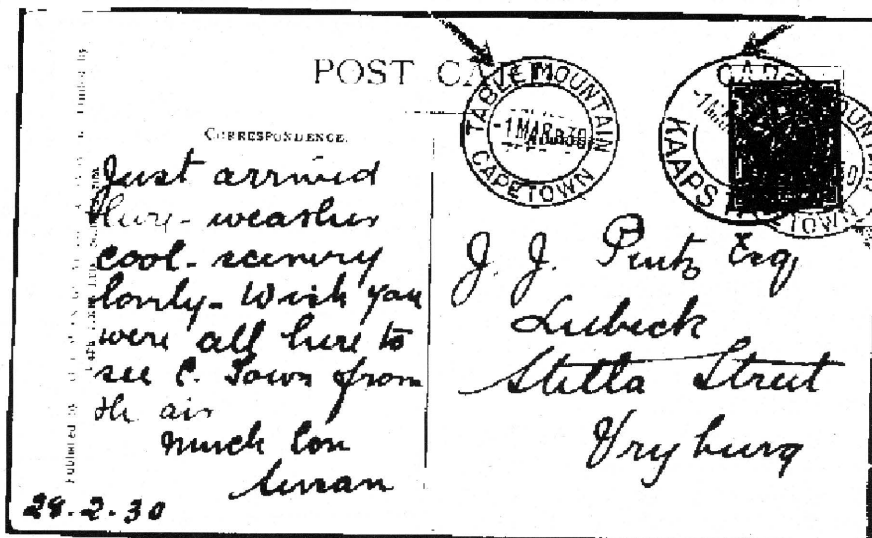 POST CA
TABLE MOUNTAIN
-1 MAR 30
CAPETOWN
CAPE
-1 MAR
KAAPS
CORRESPONDENCE.
Just arrived
here - weather
cool - scenery
lovely - Wish you
were all here to
see C. Town from
the air
Much love
28-2-30
J. J. Pentz Esq
Lubeck
Stella Street
Vryburg